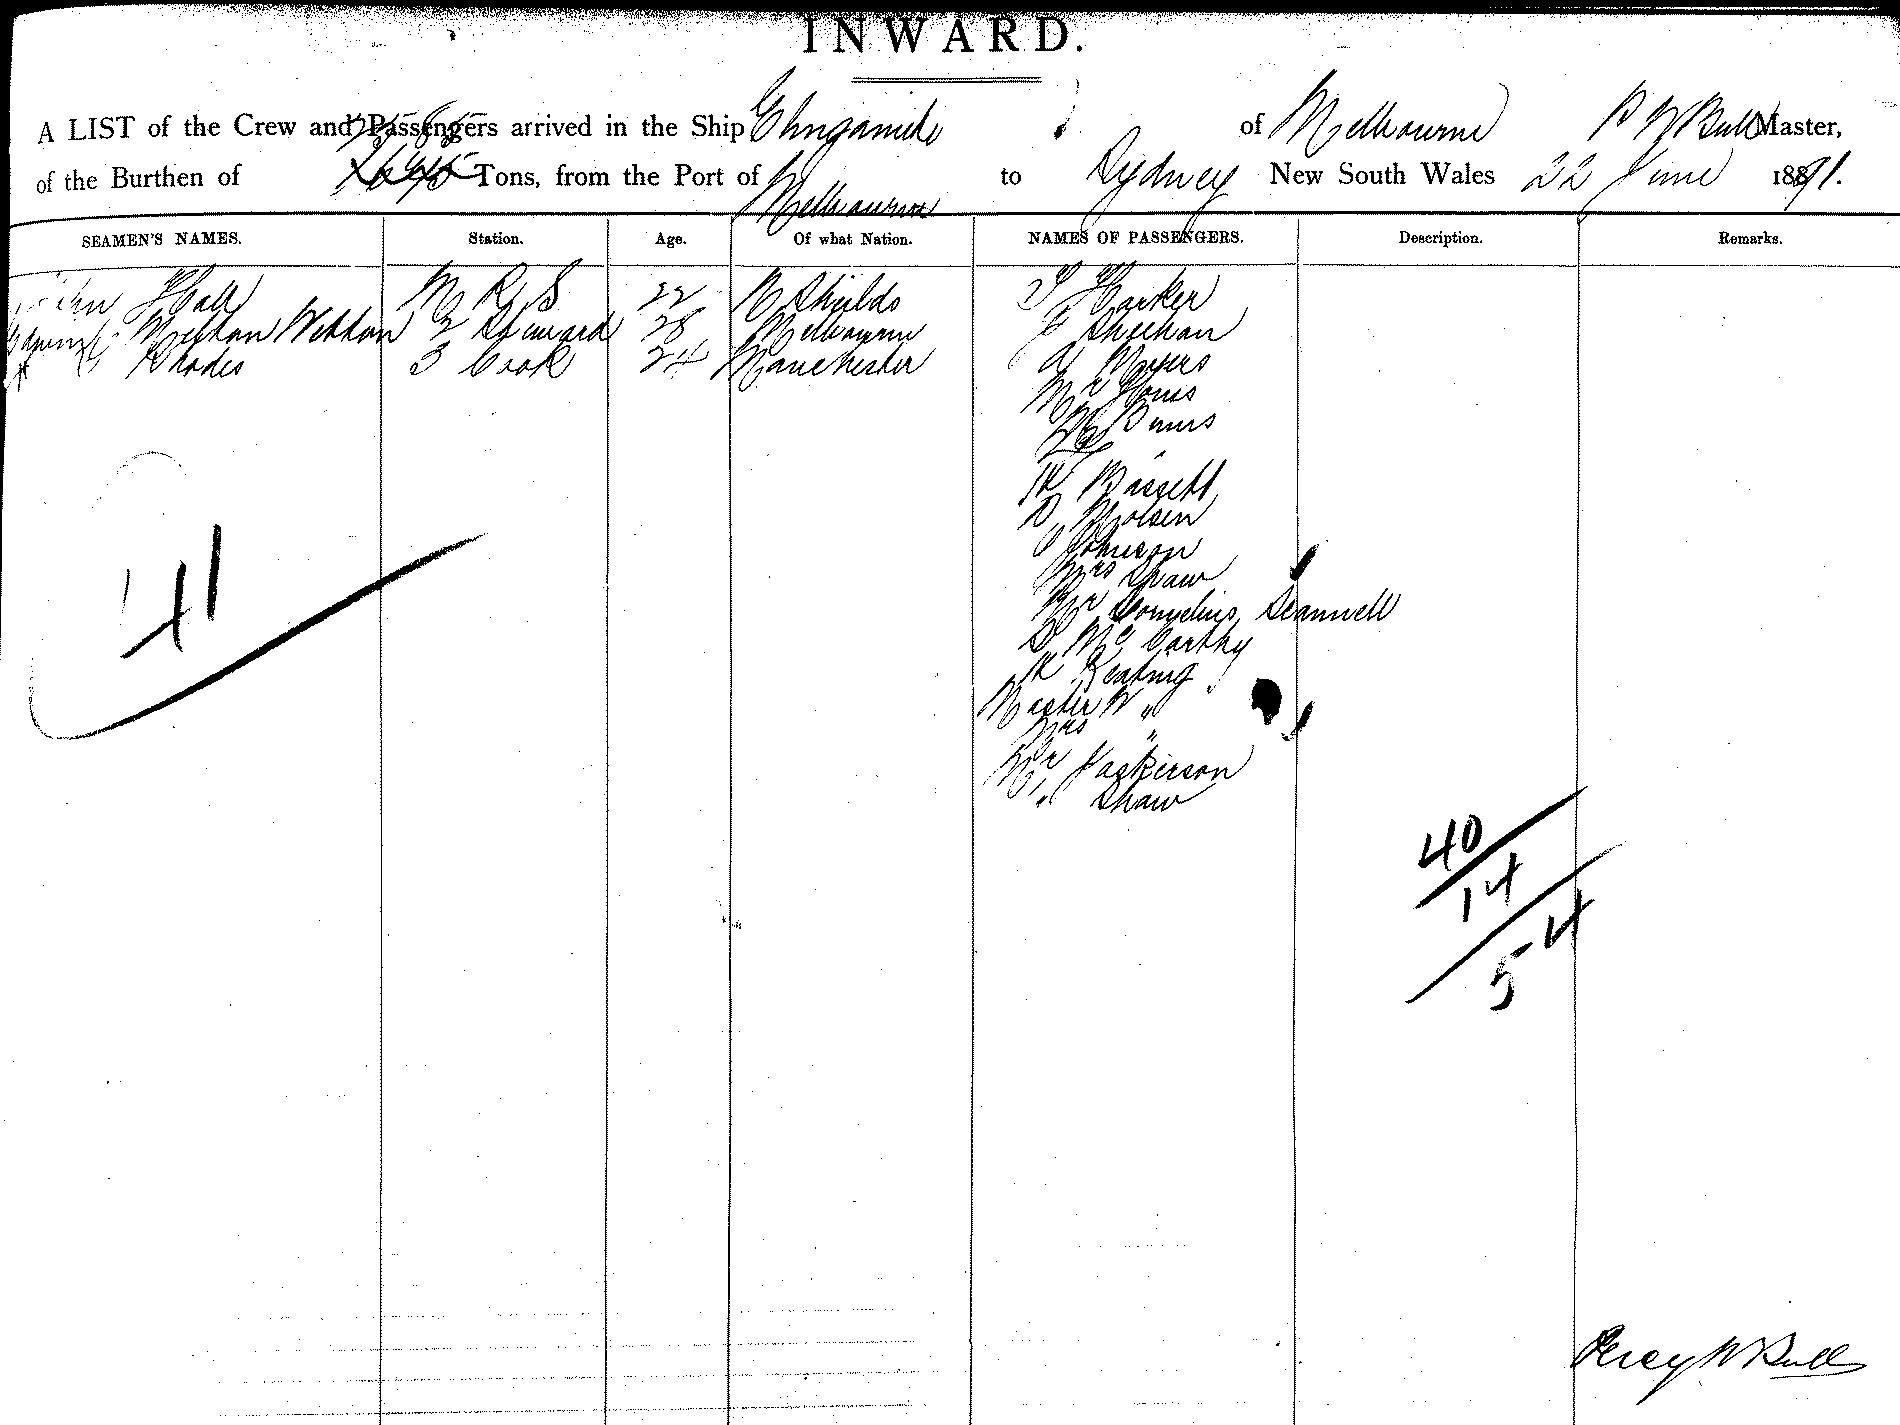 INWARD.
A LIST of the Crew and Passengers arrived in the Ship Elingamite of Melbourne P W Bull Master,
of the Burthen of Tons, from the Port of Melbourne to Sydney New South Wales 22 June 1891.
SEAMEN'S NAMES. Station. Age. Of what Nation. NAMES OF PASSENGERS. Description. Remarks.
Hall M R S 22 N Shields Harker
Melton Webbon 2 Steward 28 Melbourne Sheehan
Rhodes 3 Cook 24 Manchester Myers
Mr
Burns
Bassett
D
Johnson
Mrs Shaw
Mr Cornelius Scanwell
D McCarthy
H Keating
Master W "
Mrs "
Mr Jaskerson
" Shaw
41
40
14
54
Percy W Bull